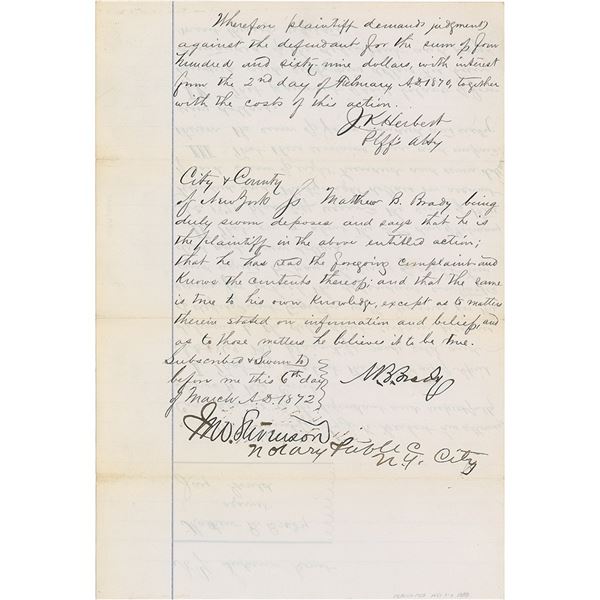 Wherefore plaintiff demands judgment
against the defendant for the sum of four
hundred and sixty-nine dollars, with interest
from the 2nd day of February A.D. 1870, together
with the costs of this action.
J. K. Herbert
Plff's Atty
City & County
of New York Ss Matthew B. Brady being
duly sworn deposes and says that he is
the plaintiff in the above entitled action;
that he has read the foregoing complaint and
knows the contents thereof; and that the same
is true to his own knowledge, except as to matters
therein stated on information and belief, and
as to those matters he believes it to be true.
Subscribed & Sworn to
before me this 6th day
of March A.D. 1872
M. B. Brady
Notary Public
N.Y. City